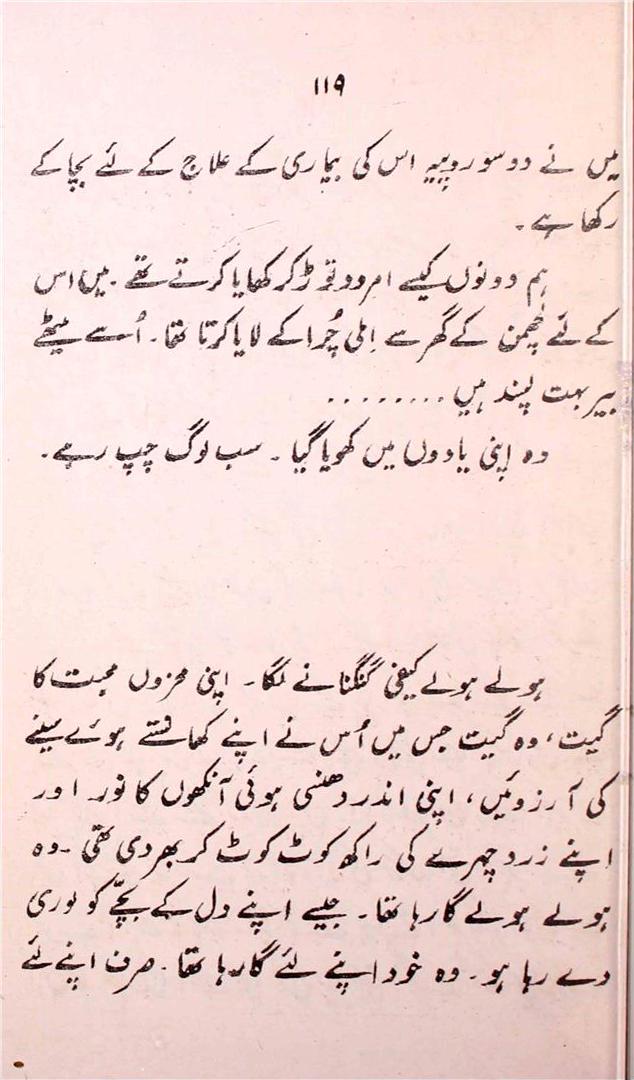 ۱۱۹
میں نے دو سو روپیہ اس کی بیماری کے علاج کے لئے بچا کے
رکھا ہے۔
ہم دونوں کیسے امرود توڑ کر کھایا کرتے تھے ۔ میں اس
کے لئے لچھمن کے گھر سے اِملی چُرا کے لایا کرتا تھا۔ اُسے میٹھے
بیر بہت پسند ہیں ........
وہ اپنی یادوں میں کھویا گیا ۔ سب لوگ چپ رہے۔
ہولے ہولے کیفی گنگنانے لگا۔ اپنی محزوں محبت کا
گیت، وہ گیت جس میں اُس نے اپنے کھانستے ہوئے سینے
کی آرزوئیں، اپنی اندر دھنسی ہوئی آنکھوں کا نور اور
اپنے زرد چہرے کی راکھ کوٹ کوٹ کر بھر دی تھی ۔ وہ
ہولے ہولے گا رہا تھا۔ جیسے اپنے دل کے بچّے کو لوری
دے رہا ہو۔ وہ خود اپنے لئے گا رہا تھا۔ صرف اپنے لئے